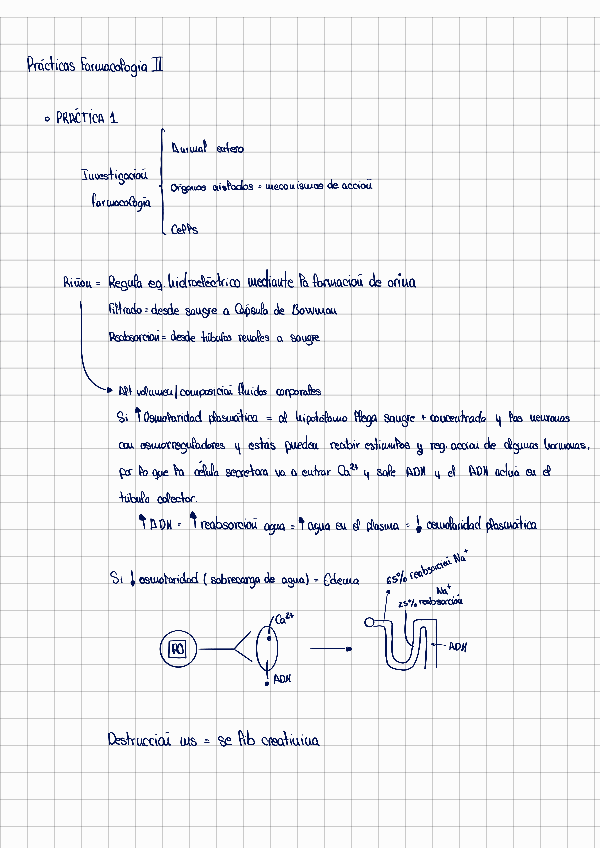 Prácticas Farmacología II
o PRÁCTICA 1
Animal entero
Investigación
farmacología
Órganos aislados = mecanismos de acción
Cells
Riñón = Regula eq. hidroeléctrico mediante la formación de orina
Filtrado = desde sangre a Cápsula de Bowman
Reabsorción = desde túbulos renales a sangre
Alt volumen/composición fluidos corporales
Si ↑ Osmolaridad plasmática = al hipotálamo llega sangre + concentrada y las neuronas
con osmorreguladores y estas pueden reabir estímulos y reg. accion de algunas hormonas,
por lo que la célula secretora va a entrar Ca²⁺ y sale ADH y el ADH actúa en el
túbulo colector.
↑ ADH = ↑ reabsorción agua = ↑ agua en el plasma = ↓ osmolaridad plasmática
Si ↓ osmolaridad (sobrecarga de agua) = Edema
65% reabsorción Na⁺
Na⁺
25% reabsorción
Ca²⁺
ADH
ADH
Destrucción ms = se lib creatinina